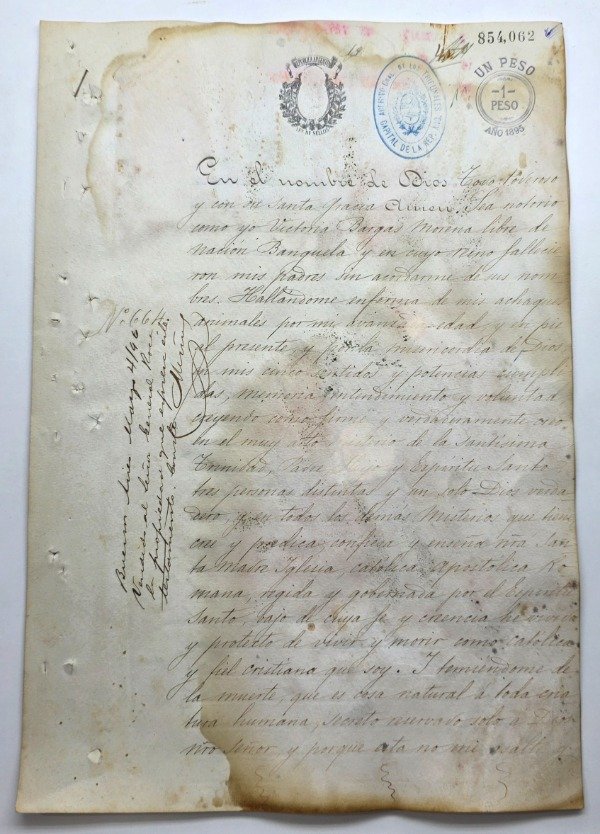 854,062
UN PESO
-1-
PESO
AÑO 1895
ARCHIVO GRAL. DE LOS TRIBUNALES
CAPITAL DE LA REP.
En el nombre de Dios Todo Poderoso
y con su Santa gracia Amen. Sea notorio
como yo Victoria Bargas Morena libre de
nacion Banguela y en cuyo Reino fallecie
ron mis padres sin acordarme de sus nom
bres. Hallandome enferma de mis achaques
por mi avanzada edad y en pie
el presente y por la misericordia de Dios
en mis cinco sentidos y potencias
memoria entendimiento y voluntad
creyendo como firme y verdaderamente creo
en el muy alto misterio de la Santisima
Trinidad, Padre, Hijo y Espiritu Santo
tres personas distintas y un solo Dios verda
dero, y en todos los demas Misterios que tiene
cree y predica, confiesa y enseña nra San
ta Madre Iglesia, catolica Apostolica Ro
mana, regida y gobernada por el Espiritu
Santo, bajo de cuya fe y creencia he vivido
y protesto de vivir y morir como catolica
y fiel cristiana que soy. I temiendome de
la muerte, que es cosa natural á toda cria
tura humana, secreto reservado solo á Dios
nro Señor, y porque esta no me asalte
No 664
Buenos Aires Marzo 4/96
Vendido al Señor General Roca
la propiedad que espresa este
testamento